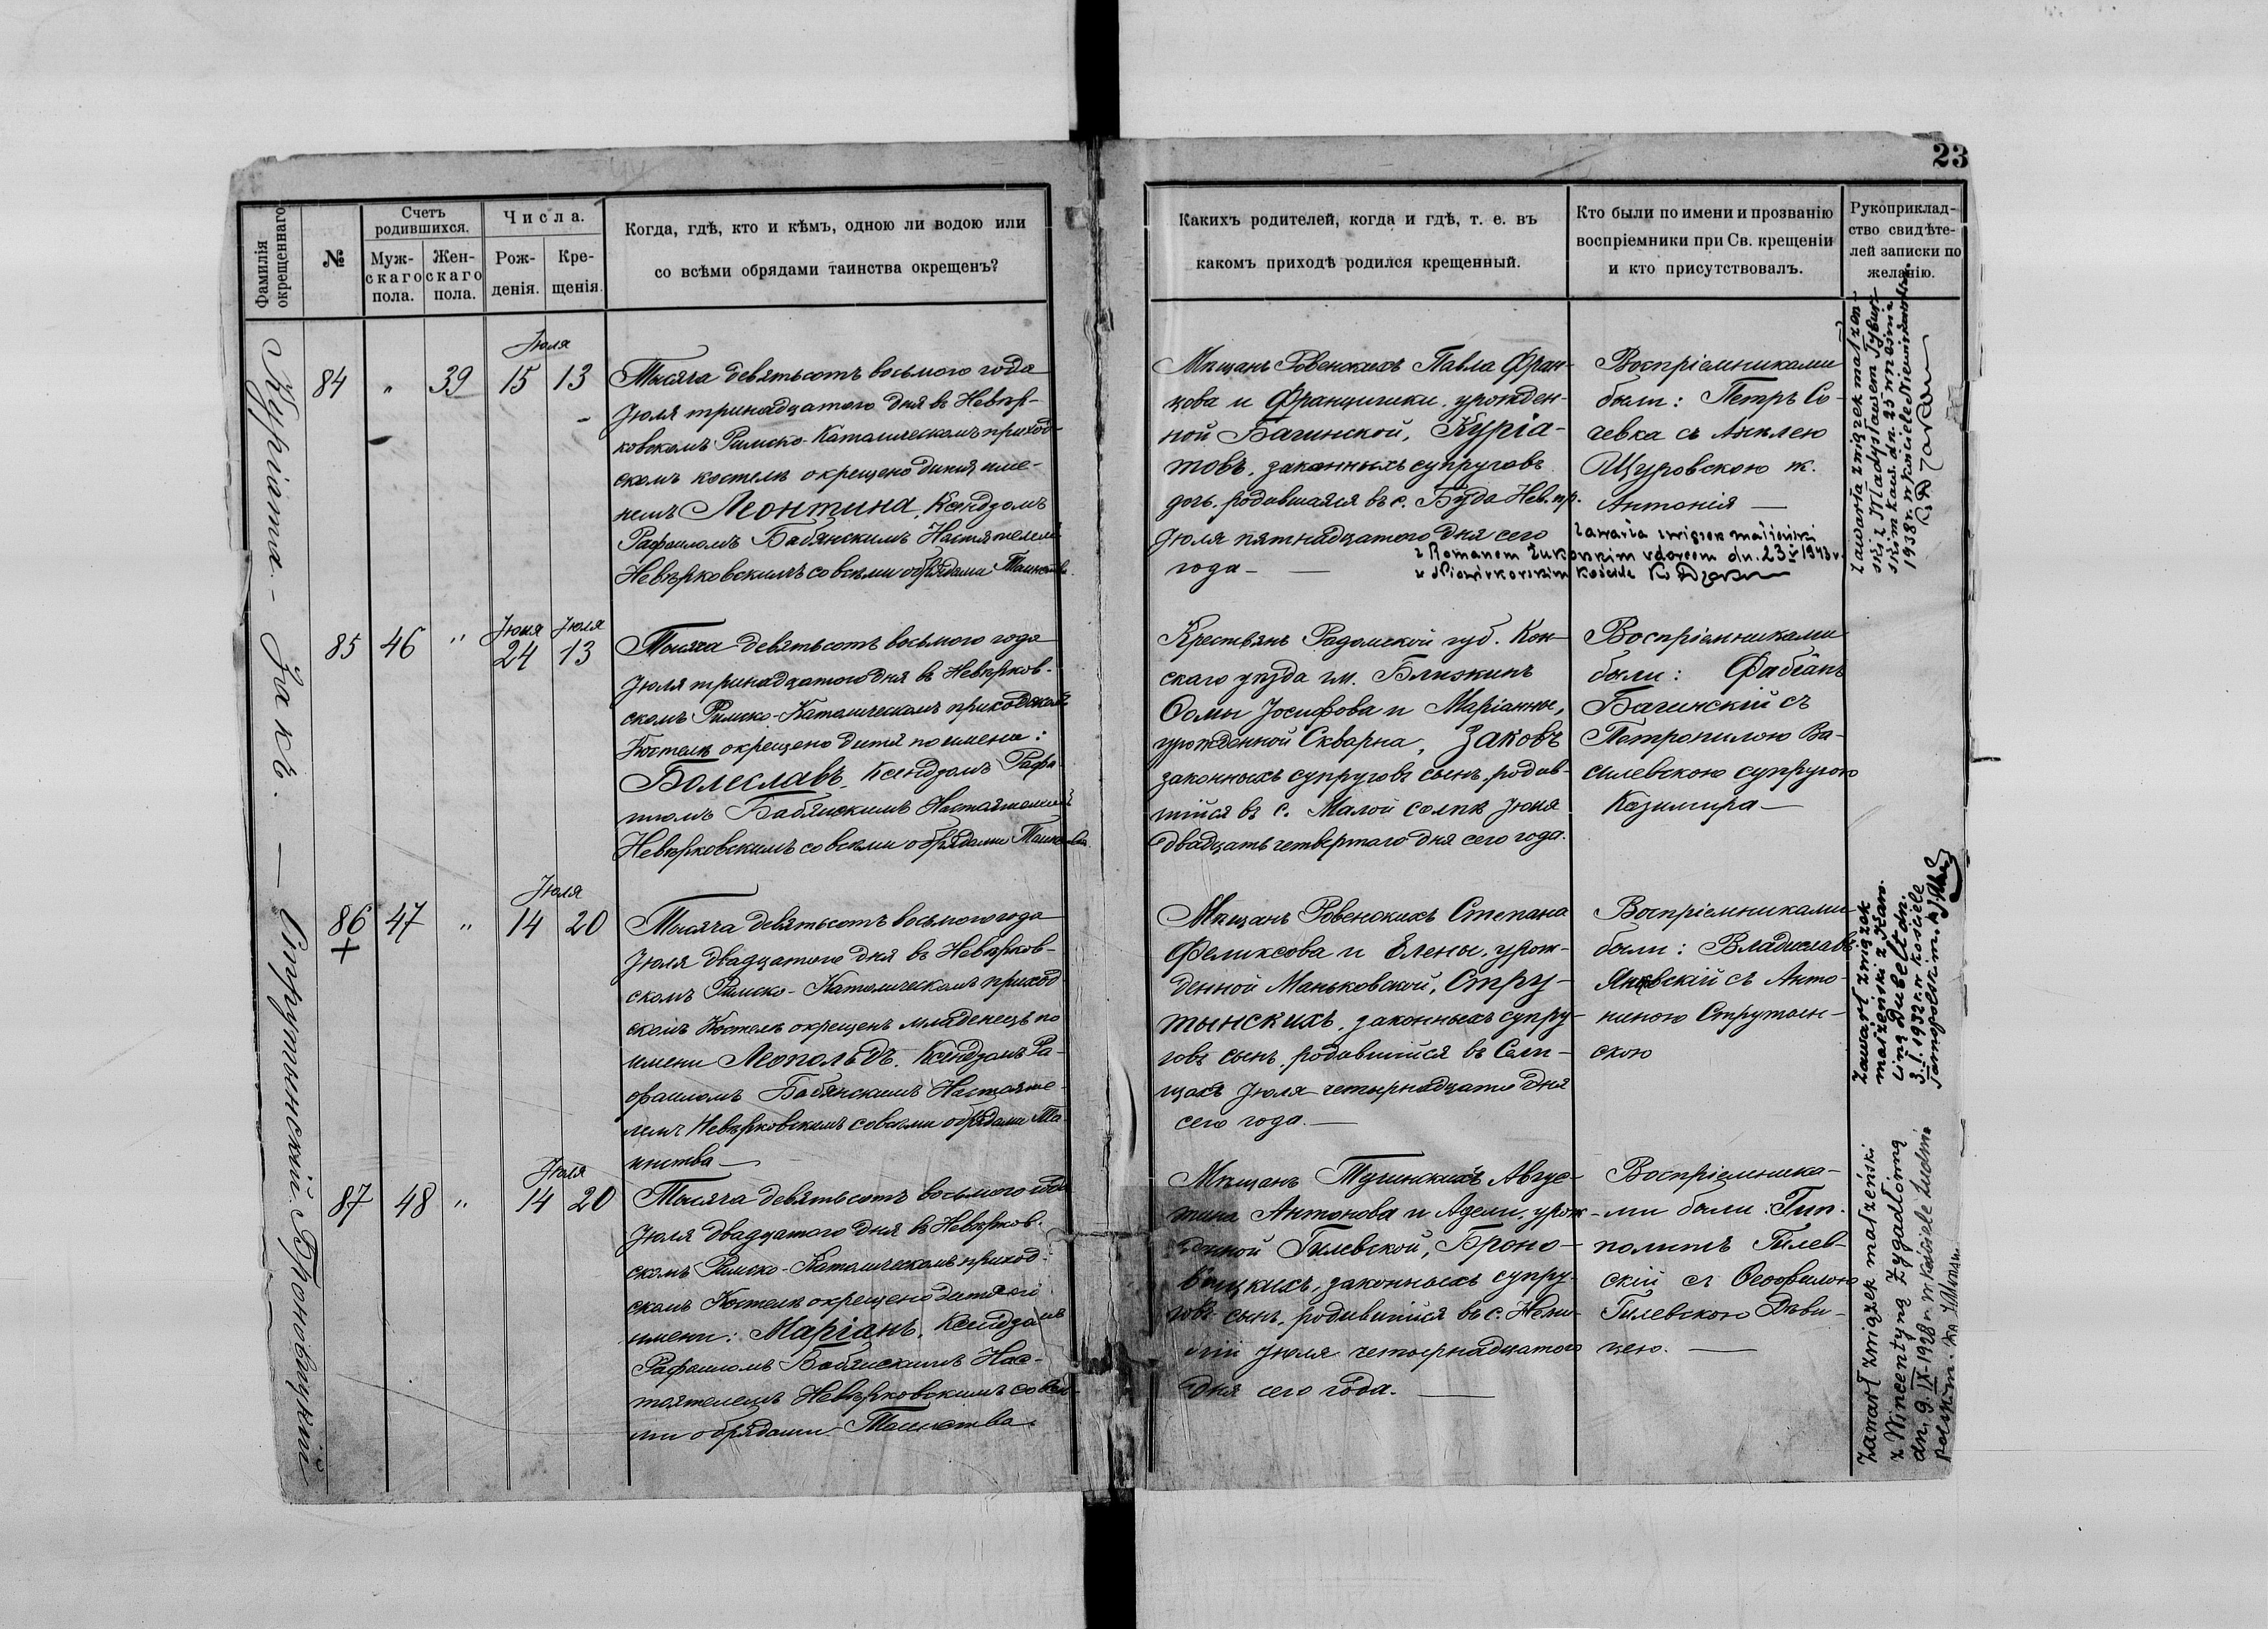 23
Фамилія окрещеннаго
№
Счетъ родившихся.
Муж-скаго пола.
Жен-скаго пола.
Числа.
Рож-денія.
Кре-щенія.
Когда, гдѣ, кто и кѣмъ, одною ли водою или
со всѣми обрядами таинства окрещенъ?
Каких​ъ родителей, когда и гдѣ, т. е. въ
какомъ приходѣ родился крещенный.
Кто были по имени и прозванію
воспріемники при Св. крещеніи
и кто присутствовалъ.
Рукоприклад-
ство свидѣте-
лей записки по
желанію.
Куріата.
84 " 39
Іюля
15 13
Тысяча девятьсотъ восьмого года
Іюля тринадцатого дня въ Невѣр-
ковскомъ Римско-Католическомъ приход-
скомъ костелѣ окрещено дитя име-
немъ Леонтина, Ксендзомъ
Рафаиломъ Бабянскимъ Настоятелемъ
Невѣрковскимъ со всѣми обрядами Таинства.
Мѣщанъ Ровенскихъ Павла Фран-
цова и Францишки, урожден-
ной Багинской, Куріа-
товъ, законныхъ супруговъ
дочь, родившаяся въ с. Буда Нев. пр.
Іюля пятнадцатого дня сего
года —
Воспріемниками
были: Петръ Со-
чевка съ Анелею
Щуровскою ж.
Антонія —
zawarła związek małżeński
z Romanem Żukowskim wdowcem dn. 23 V 1943 r.
w Niewirkowskim kościele Ks
Zawarła związek małżeń-
ski z Władysławem
skim kaw. dn. 25 września
1938 r. w kościele Niewirkowskim
Закъ.
85 46 "
Іюня Іюля
24 13
Тысяча девятьсотъ восьмого года
Іюля тринадцатого дня въ Невѣрков-
скомъ Римско-Католическомъ приходскомъ
Костелѣ окрещено дитя по имени:
Болеславъ, Ксендзомъ Рафа-
иломъ Бабянскимъ Настоятелемъ
Невѣрковскимъ со всѣми обрядами Таинства
Крестьянъ Радомской губ. Кон-
скаго уѣзда гм. Ближинъ
Ѳомы Іосифова и Маріанны,
урожденной Скварна, Заковъ
законныхъ супруговъ сынъ, родив-
шійся въ с. Малой Солпѣ Іюня
двадцать четвертаго дня сего года.
Воспріемниками
были: Фабіанъ
Багинскій съ
Петронилою Ва-
силевскою супругою
Казимира —
Струтынскій.
86 47 "
+
Іюля
14 20
Тысяча девятьсотъ восьмого года
Іюля двадцатого дня въ Невѣрков-
скомъ Римско-Католическомъ приход-
скомъ Костелѣ окрещенъ младенецъ по
имени Леопольдъ. Ксендзомъ Ра-
фаиломъ Бабянскимъ Настояте-
лемъ Невѣрковскимъ со всѣми обрядами Та-
инства —
Мѣщанъ Ровенскихъ Степана
Феликсова и Елены, урож-
денной Маньковской, Стру-
тынскихъ, законныхъ супру-
говъ сынъ, родившійся въ Сели-
щахъ Іюля четырнадцатого дня
сего года. —
Воспріемниками
были: Владиславъ
Яновскій съ Анто-
ниною Струтын-
скою
Zawarł związek
małżeński z Karo-
liną Dubelt dn.
3.I.1932 r. w kościele
Tarnopolskim.
Броновицкій
87 48 "
Іюля
14 20
Тысяча девятьсотъ восьмого года
Іюля двадцатого дня въ Невѣрков-
скомъ Римско-Католическомъ приход-
скомъ Костелѣ окрещено дитя по
имени: Маріанъ. Ксендзомъ
Рафаиломъ Бабянскимъ Нас-
тоятелемъ Невѣрковскимъ со всѣ-
ми обрядами Таинства.
Мѣщанъ Тучинскихъ Авгус-
тина Антонова и Адели, урож-
денной Гилевской, Броно-
вицкихъ, законныхъ супру-
говъ сынъ, родившійся въ с.
Іюля четырнадцатого
дня сего года. —
Воспріемника-
ми были: Гип-
политъ Гилев-
скій съ Ѳеофилою
Гилевскою Дѣви-
цею. —
Zawarł związek małżeński
z Wincentyną Żygadlówną
dn. 9.IX.1928 r. w kościele Ludwi-
polskim.